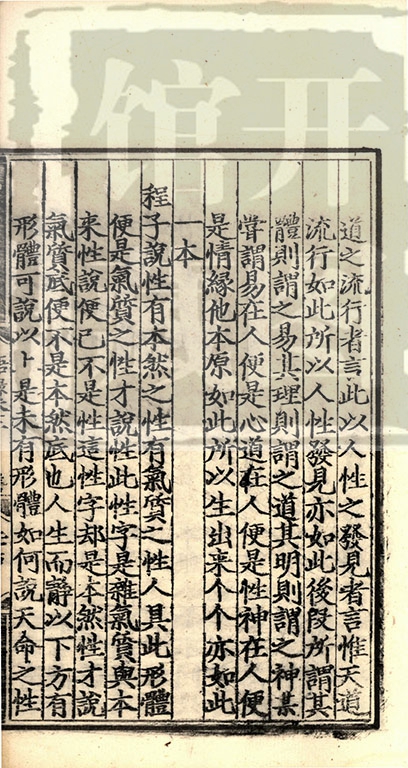 道之流行者言此以人性之發見者言惟天道
流行如此所以人性發見亦如此後段所謂其
體則謂之易其理則謂之道其明則謂之神某
嘗謂易在人便是心道在人便是性神在人便
是情緣他本原如此所以生出来个个亦如此
一本
程子說性有本然之性有氣質之性人具此形體
便是氣質之性才說性此性字是雜氣質與本
来性說便已不是性這性字却是本然性才說
氣質底便不是本然底也人生而靜以下方有
形體可說以卜是未有形體如何說天命之性